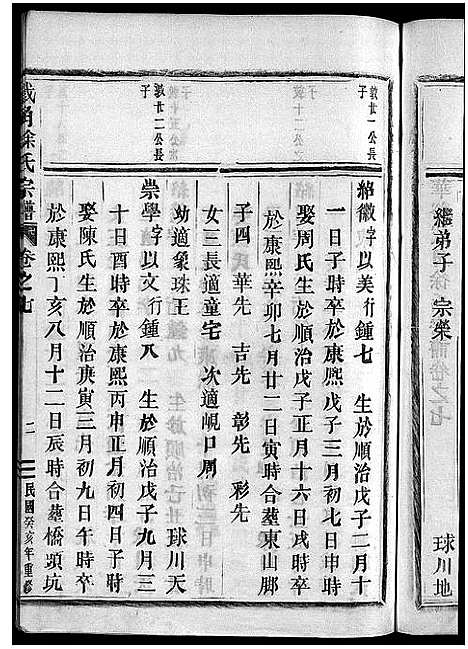 繼弟子 宗榮
球川地
敦廿一公長
子
紹徽字以美行鍾七 生於順治戊子二月十
一日子時卒於康熙戊子三月初七日申時
娶周氏生於順治戊子正月十六日戌時卒
於康熙辛卯七月廿二日寅時合塟東山脚
子四 華先 吉先 彰先 彩先
女三長適童宅 次適峴口周
幼適象珠王 球川天
敦廿二公長
子
崇學字以文行鍾八 生於順治戊子九月三
十日酉時卒於康熙丙申正月初四日子時
娶陳氏生於順治庚寅三月初九日午時卒
於康熙丁亥八月十二日辰時合塟橋頭坑
徐氏宗譜 卷之七 二 民國癸亥年重修